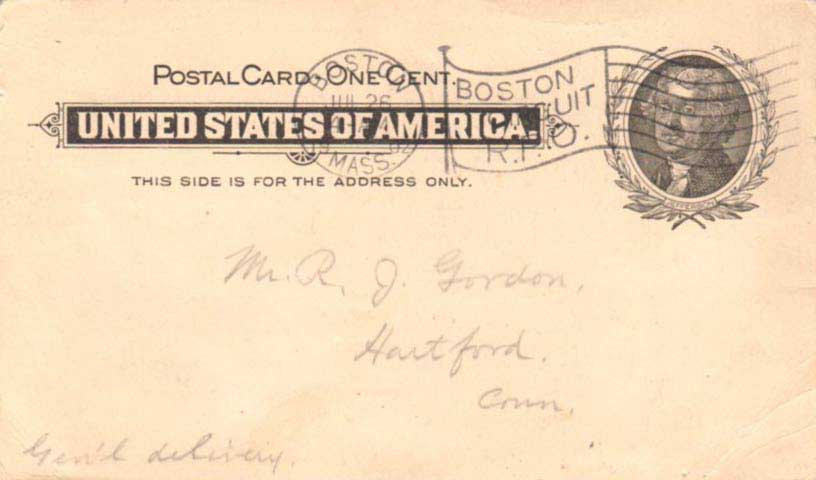 POSTAL CARD - ONE CENT.
UNITED STATES OF AMERICA.
THIS SIDE IS FOR THE ADDRESS ONLY.
BOSTON
JUL 26
MASS.
BOSTON
UIT
R.P.O.
JEFFERSON
Mr. R. J. Gordon,
Hartford.
Conn.
Gen'l delivery.